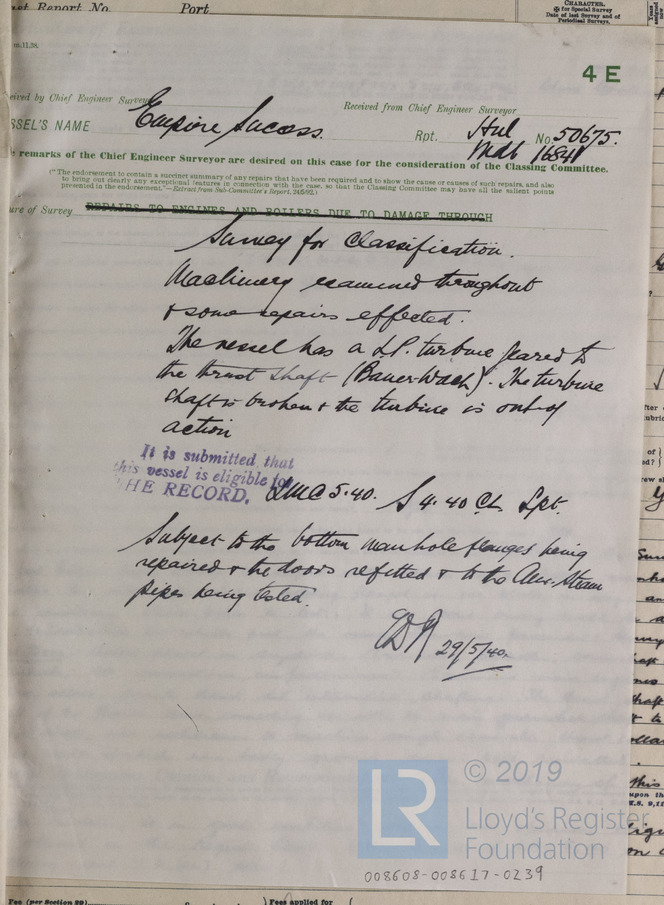 st Report No. Port
CHARACTER.
✠ for Special Survey
Date of last Survey and of
Periodical Surveys.
m.11.38.
4 E
eived by Chief Engineer Surveyor
Received from Chief Engineer Surveyor
SSEL'S NAME Empire Success. Rpt. Hul No. 50675.
Mdb 16841
e remarks of the Chief Engineer Surveyor are desired on this case for the consideration of the Classing Committee.
("The endorsement to contain a succinct summary of any repairs that have been required and to show the cause or causes of such repairs, and also
to bring out clearly any exceptional features in connection with the case, so that the Classing Committee may have all the salient points
presented in the endorsement."—Extract from Sub-Committee's Report, 24/5/92.)
ure of Survey REPAIRS TO ENGINES AND BOILERS DUE TO DAMAGE THROUGH
Survey for Classification.
Machinery examined throughout
& some repairs effected.
The vessel has a L.P. turbine geared to
the thrust shaft (Bauer-Wach). The turbine
shaft is broken & the turbine is out of
action
It is submitted that
this vessel is eligible for
THE RECORD. LMC 5.40. S 4.40 CL Spt.
Subject to the bottom manhole flanges being
repaired & the doors refitted & to the Aux. Steam
pipes being tested.
29/5/40.
LR
© 2019
Lloyd's Register
Foundation
008608-008617-0239
Fee (per Section 29) Fees applied for